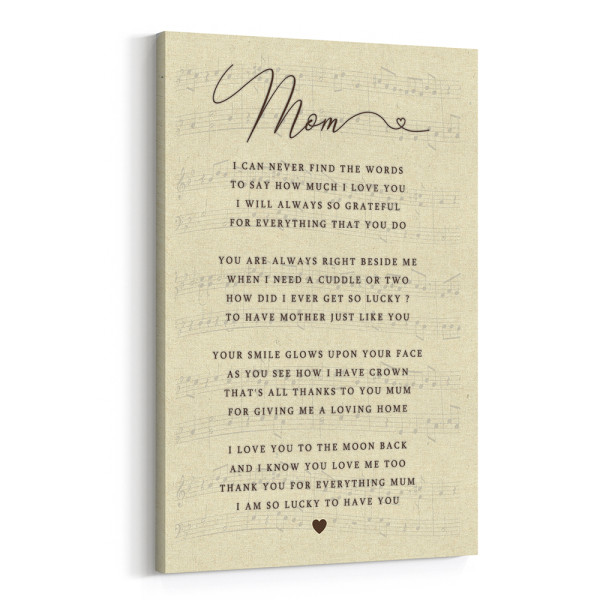 Mom
I CAN NEVER FIND THE WORDS
TO SAY HOW MUCH I LOVE YOU
I WILL ALWAYS SO GRATEFUL
FOR EVERYTHING THAT YOU DO
YOU ARE ALWAYS RIGHT BESIDE ME
WHEN I NEED A CUDDLE OR TWO
HOW DID I EVER GET SO LUCKY ?
TO HAVE MOTHER JUST LIKE YOU
YOUR SMILE GLOWS UPON YOUR FACE
AS YOU SEE HOW I HAVE CROWN
THAT'S ALL THANKS TO YOU MUM
FOR GIVING ME A LOVING HOME
I LOVE YOU TO THE MOON BACK
AND I KNOW YOU LOVE ME TOO
THANK YOU FOR EVERYTHING MUM
I AM SO LUCKY TO HAVE YOU